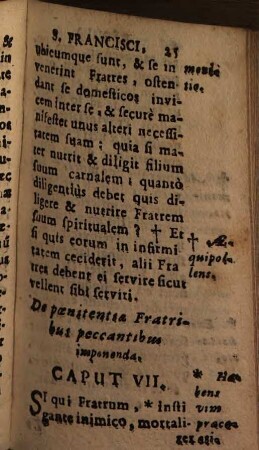 S. FRANCISCI. 25
ubicumque sunt, & se in
venerint Fratres, osten
dant se domesticos invi
cem inter se, & securè ma
nifestet unus alteri necessi
tatem suam; quia si ma
ter nutrit & diligit filium
suum carnalem; quantò
diligentiùs debet quis di
ligere & nutrire Fratrem
suum spiritualem? † Et
si quis eorum in infirmi
tatem ceciderit, alii Fra
tres debent ei servire sicut
vellent sibi serviri.
De pœnitentia Fratri-
bus peccantibus
imponenda.
CAPUT VII.
Si qui Fratrum, * insti
gante inimico, mortali-
monita
tio.
† Æ-
quipol
lens.
* Ha-
bens
vim
præce-
&